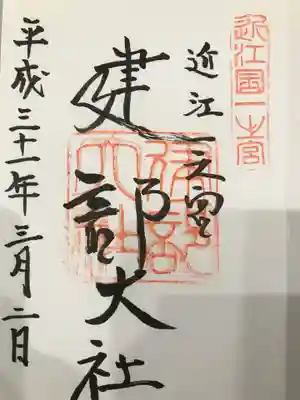 近江國一之宮
近江一之宮
建部大社
平成三十一年三月二日